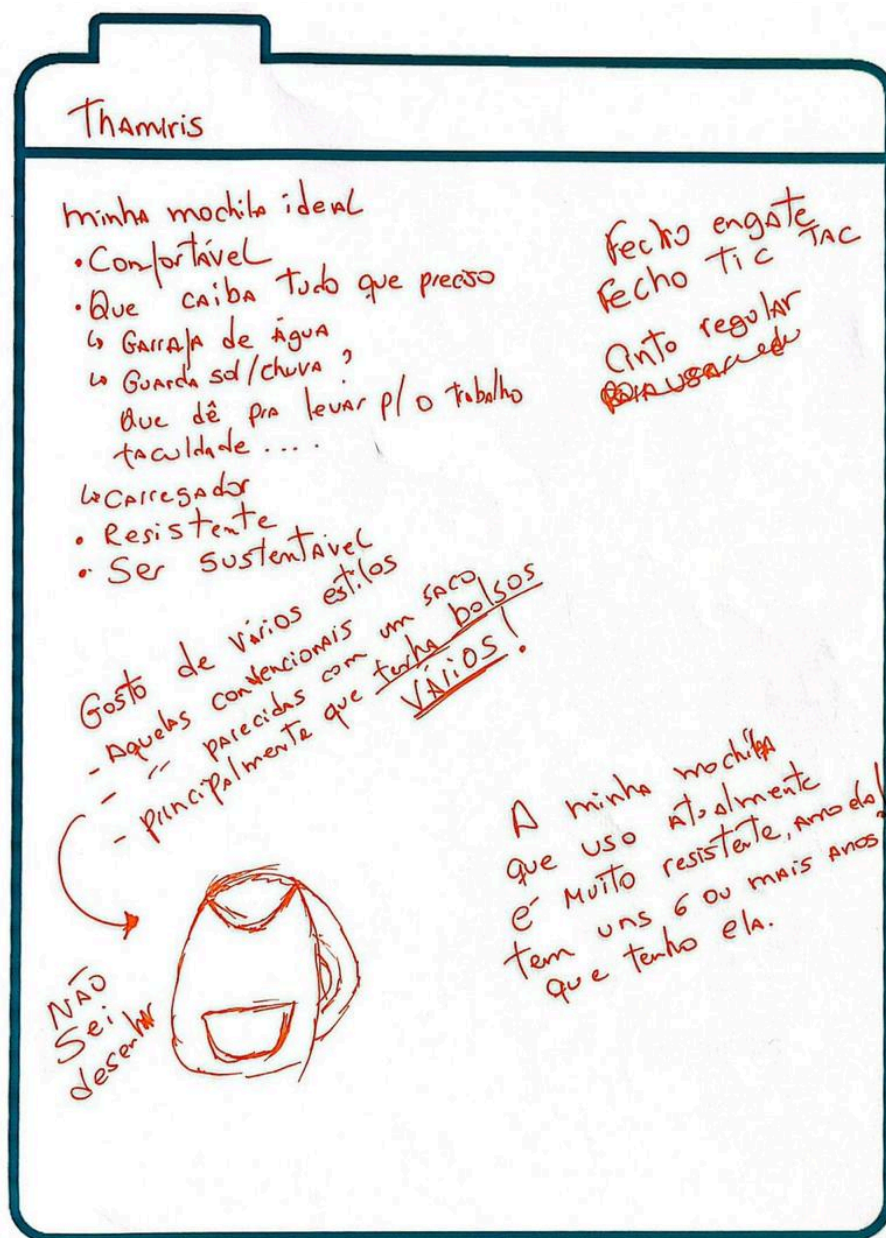 Thamiris
minha mochila ideal
• Confortável
• Que caiba tudo que preciso
↳ Garrafa de água
↳ Guarda sol/chuva ?
Que dê pra levar p/ o trabalho
faculdade ....
↳ Carregador
• Resistente
• Ser sustentável
Gosto de vários estilos
- Aquelas convencionais
- " parecidas com um saco
- principalmente que tenha bolsos
VÁRIOS!
NÃO
Sei
desenhar
Fecho engate
Fecho TIC TAC
Cinto regular
A minha mochila
que uso atualmente
é muito resistente, amo ela!
tem uns 6 ou mais anos
que tenho ela.